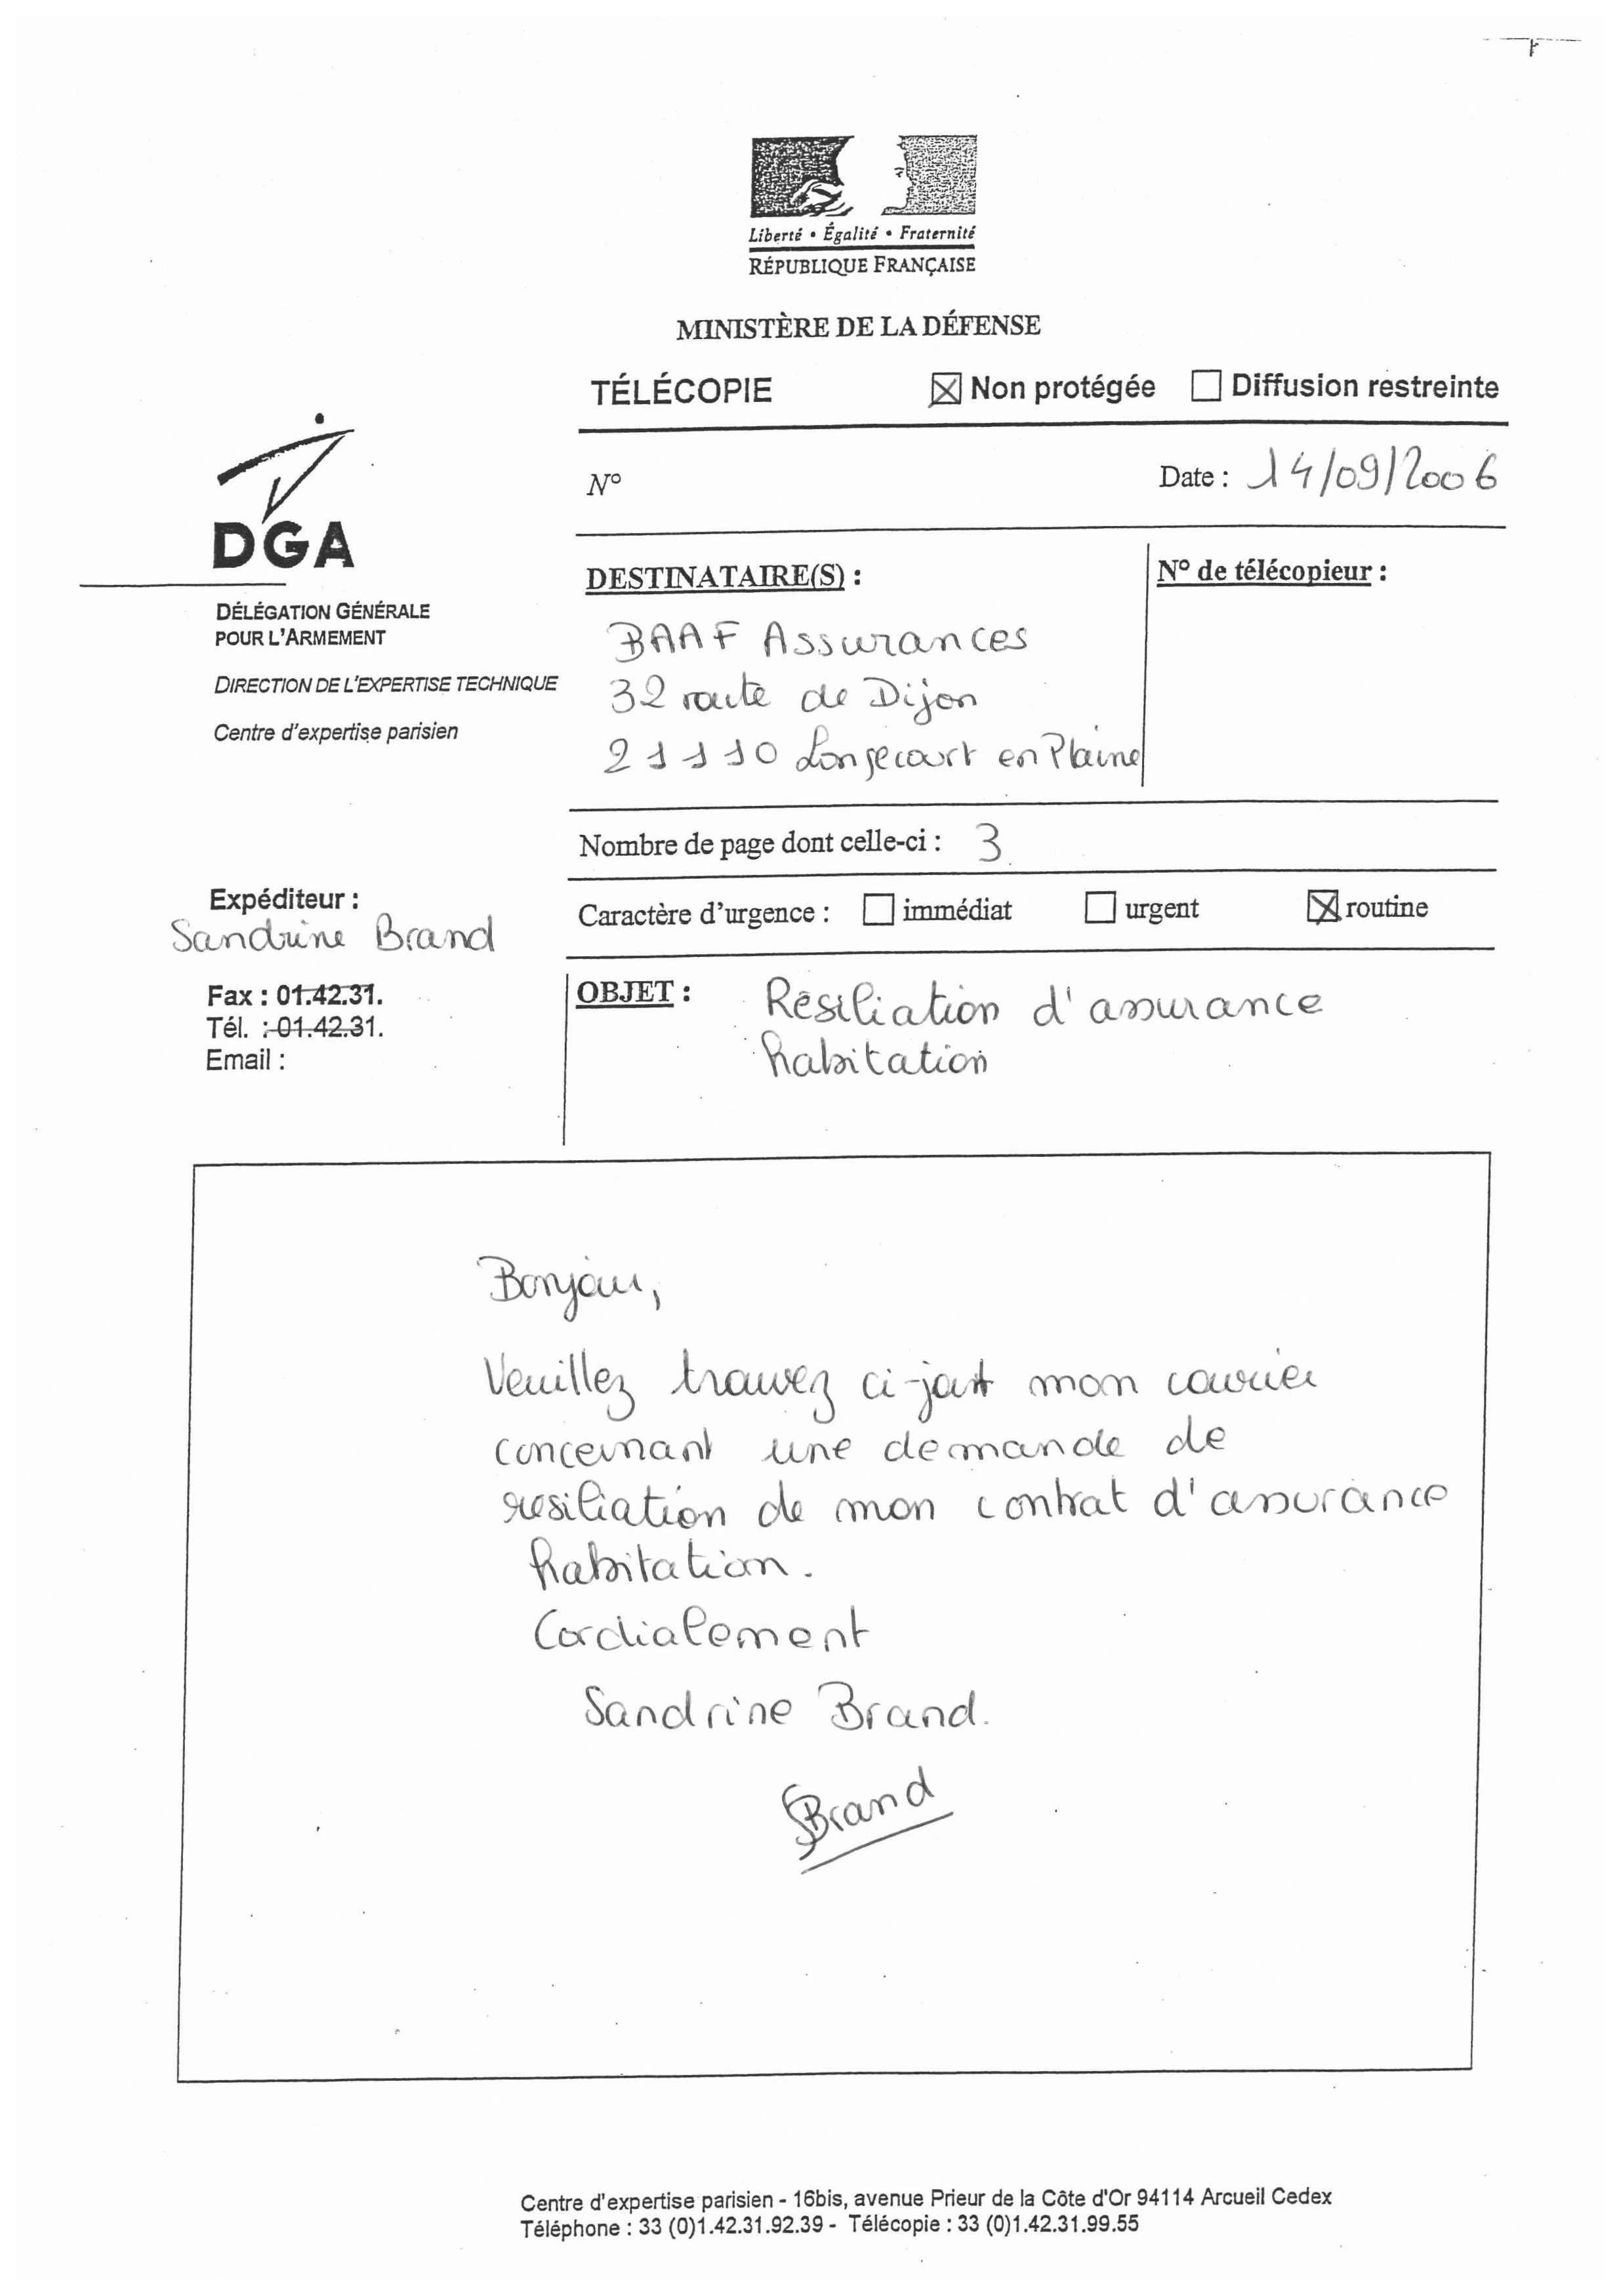 Liberté • Égalité • Fraternité
RÉPUBLIQUE FRANÇAISE
MINISTÈRE DE LA DÉFENSE
TÉLÉCOPIE ☒ Non protégée ☐ Diffusion restreinte
N° Date : 14/09/2006
DGA
DÉLÉGATION GÉNÉRALE
POUR L'ARMEMENT
DIRECTION DE L'EXPERTISE TECHNIQUE
Centre d'expertise parisien
DESTINATAIRE(S) :
BAAF Assurances
32 route de Dijon
21110 Longecourt en Plaine
N° de télécopieur :
Nombre de page dont celle-ci : 3
Expéditeur :
Sandrine Brand
Fax : 01.42.31.
Tél. : 01.42.31.
Email :
Caractère d'urgence : ☐ immédiat ☐ urgent ☒ routine
OBJET : Résiliation d'assurance
habitation
Bonjour,
Veuillez trouvez ci-joint mon courrier
concernant une demande de
resiliation de mon contrat d'assurance
habitation.
Cordialement
Sandrine Brand.
SBrand
Centre d'expertise parisien - 16bis, avenue Prieur de la Côte d'Or 94114 Arcueil Cedex
Téléphone : 33 (0)1.42.31.92.39 - Télécopie : 33 (0)1.42.31.99.55